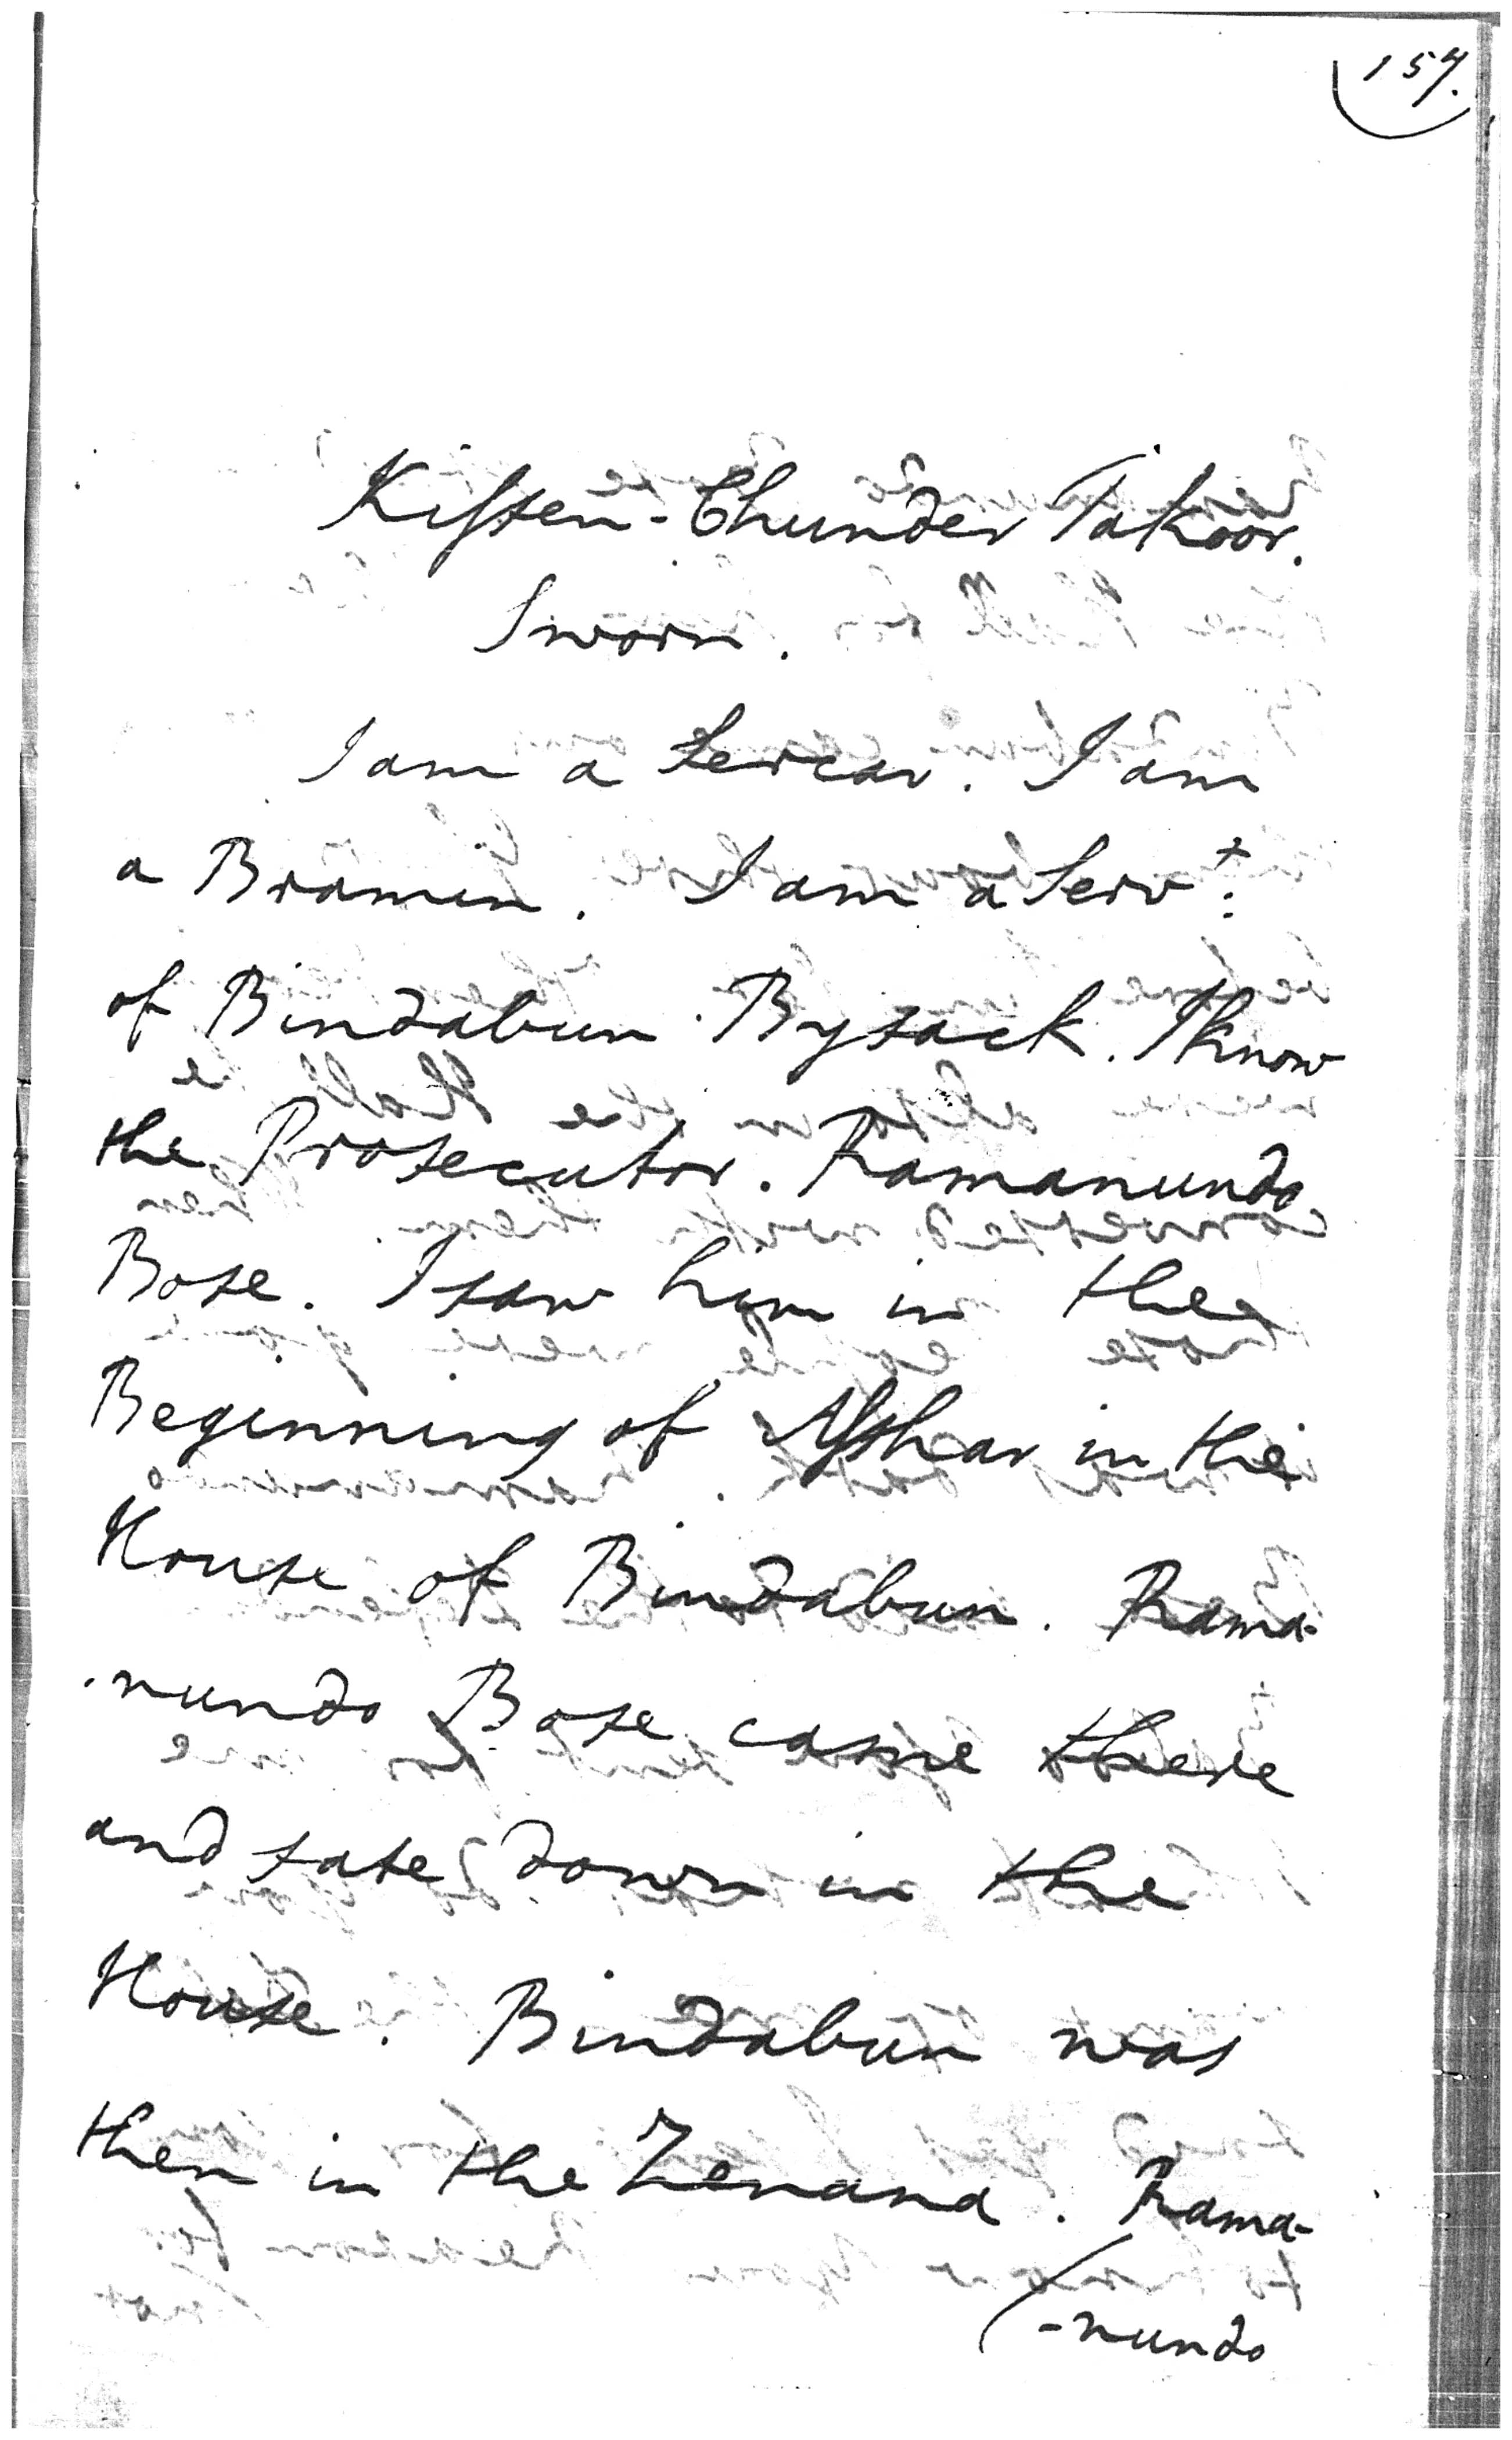 157.
Kissen-Chunder Takoor.
Sworn.
I am a Sercar. I am
a Bramin. I am a Servt:
of Bindabun Bysack. I know
the Prosecutor. Ramanundo
Bose. I saw him in the
Beginning of Asshar in the
House of Bindabun. Rama-
-nundo Bose came there
and sate down in the
House. Bindabun was
then in the Zenana. Rama-
-nundo